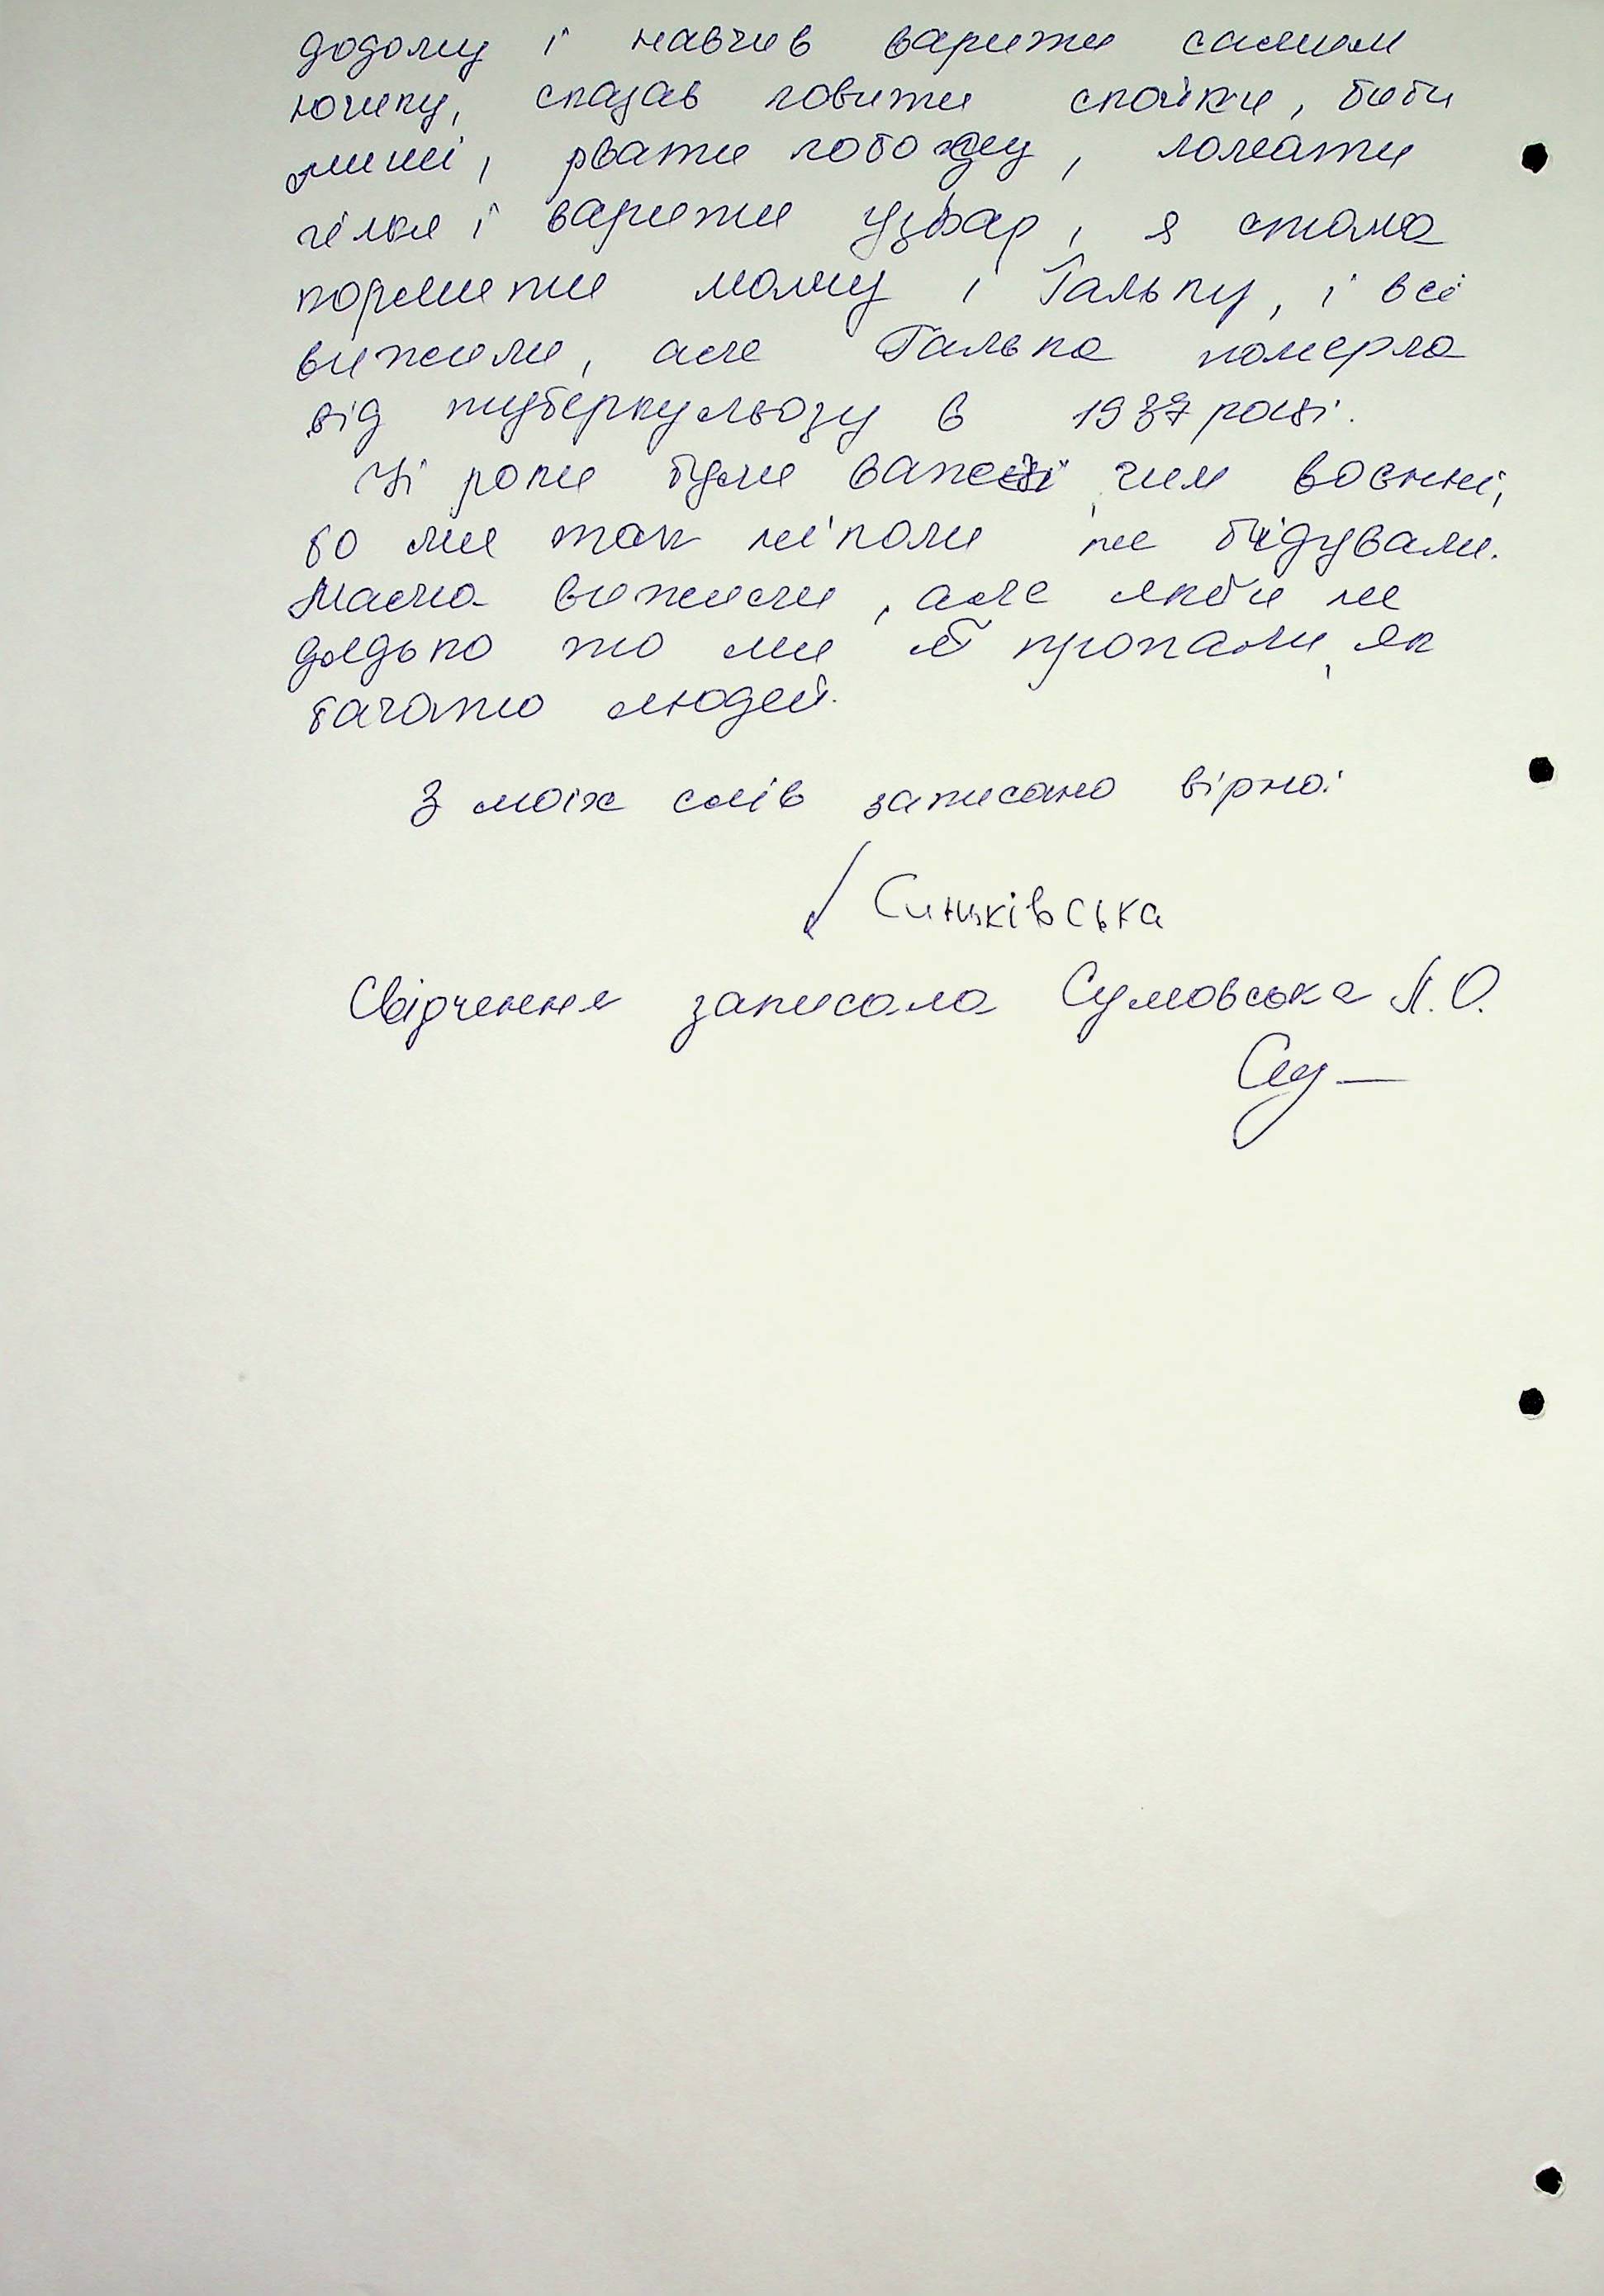 додому і навчив варити самим
юшку, сказав ловити спайки, бити
миші, рвати лободу, ломати
гілля і варити узвар, я стала
кормити маму і Гальку, і всі
вижили, але Галька померла
від туберкульозу в 1937 році.
Ці роки були важчі чим воєнні,
бо ми так ніколи не бідували.
Мама вижили, але якби не
дядько то ми б пропали, як
багато людей.
З моїх слів записано вірно:
Синьківська
Свідчення записала Сумовська Л.О.